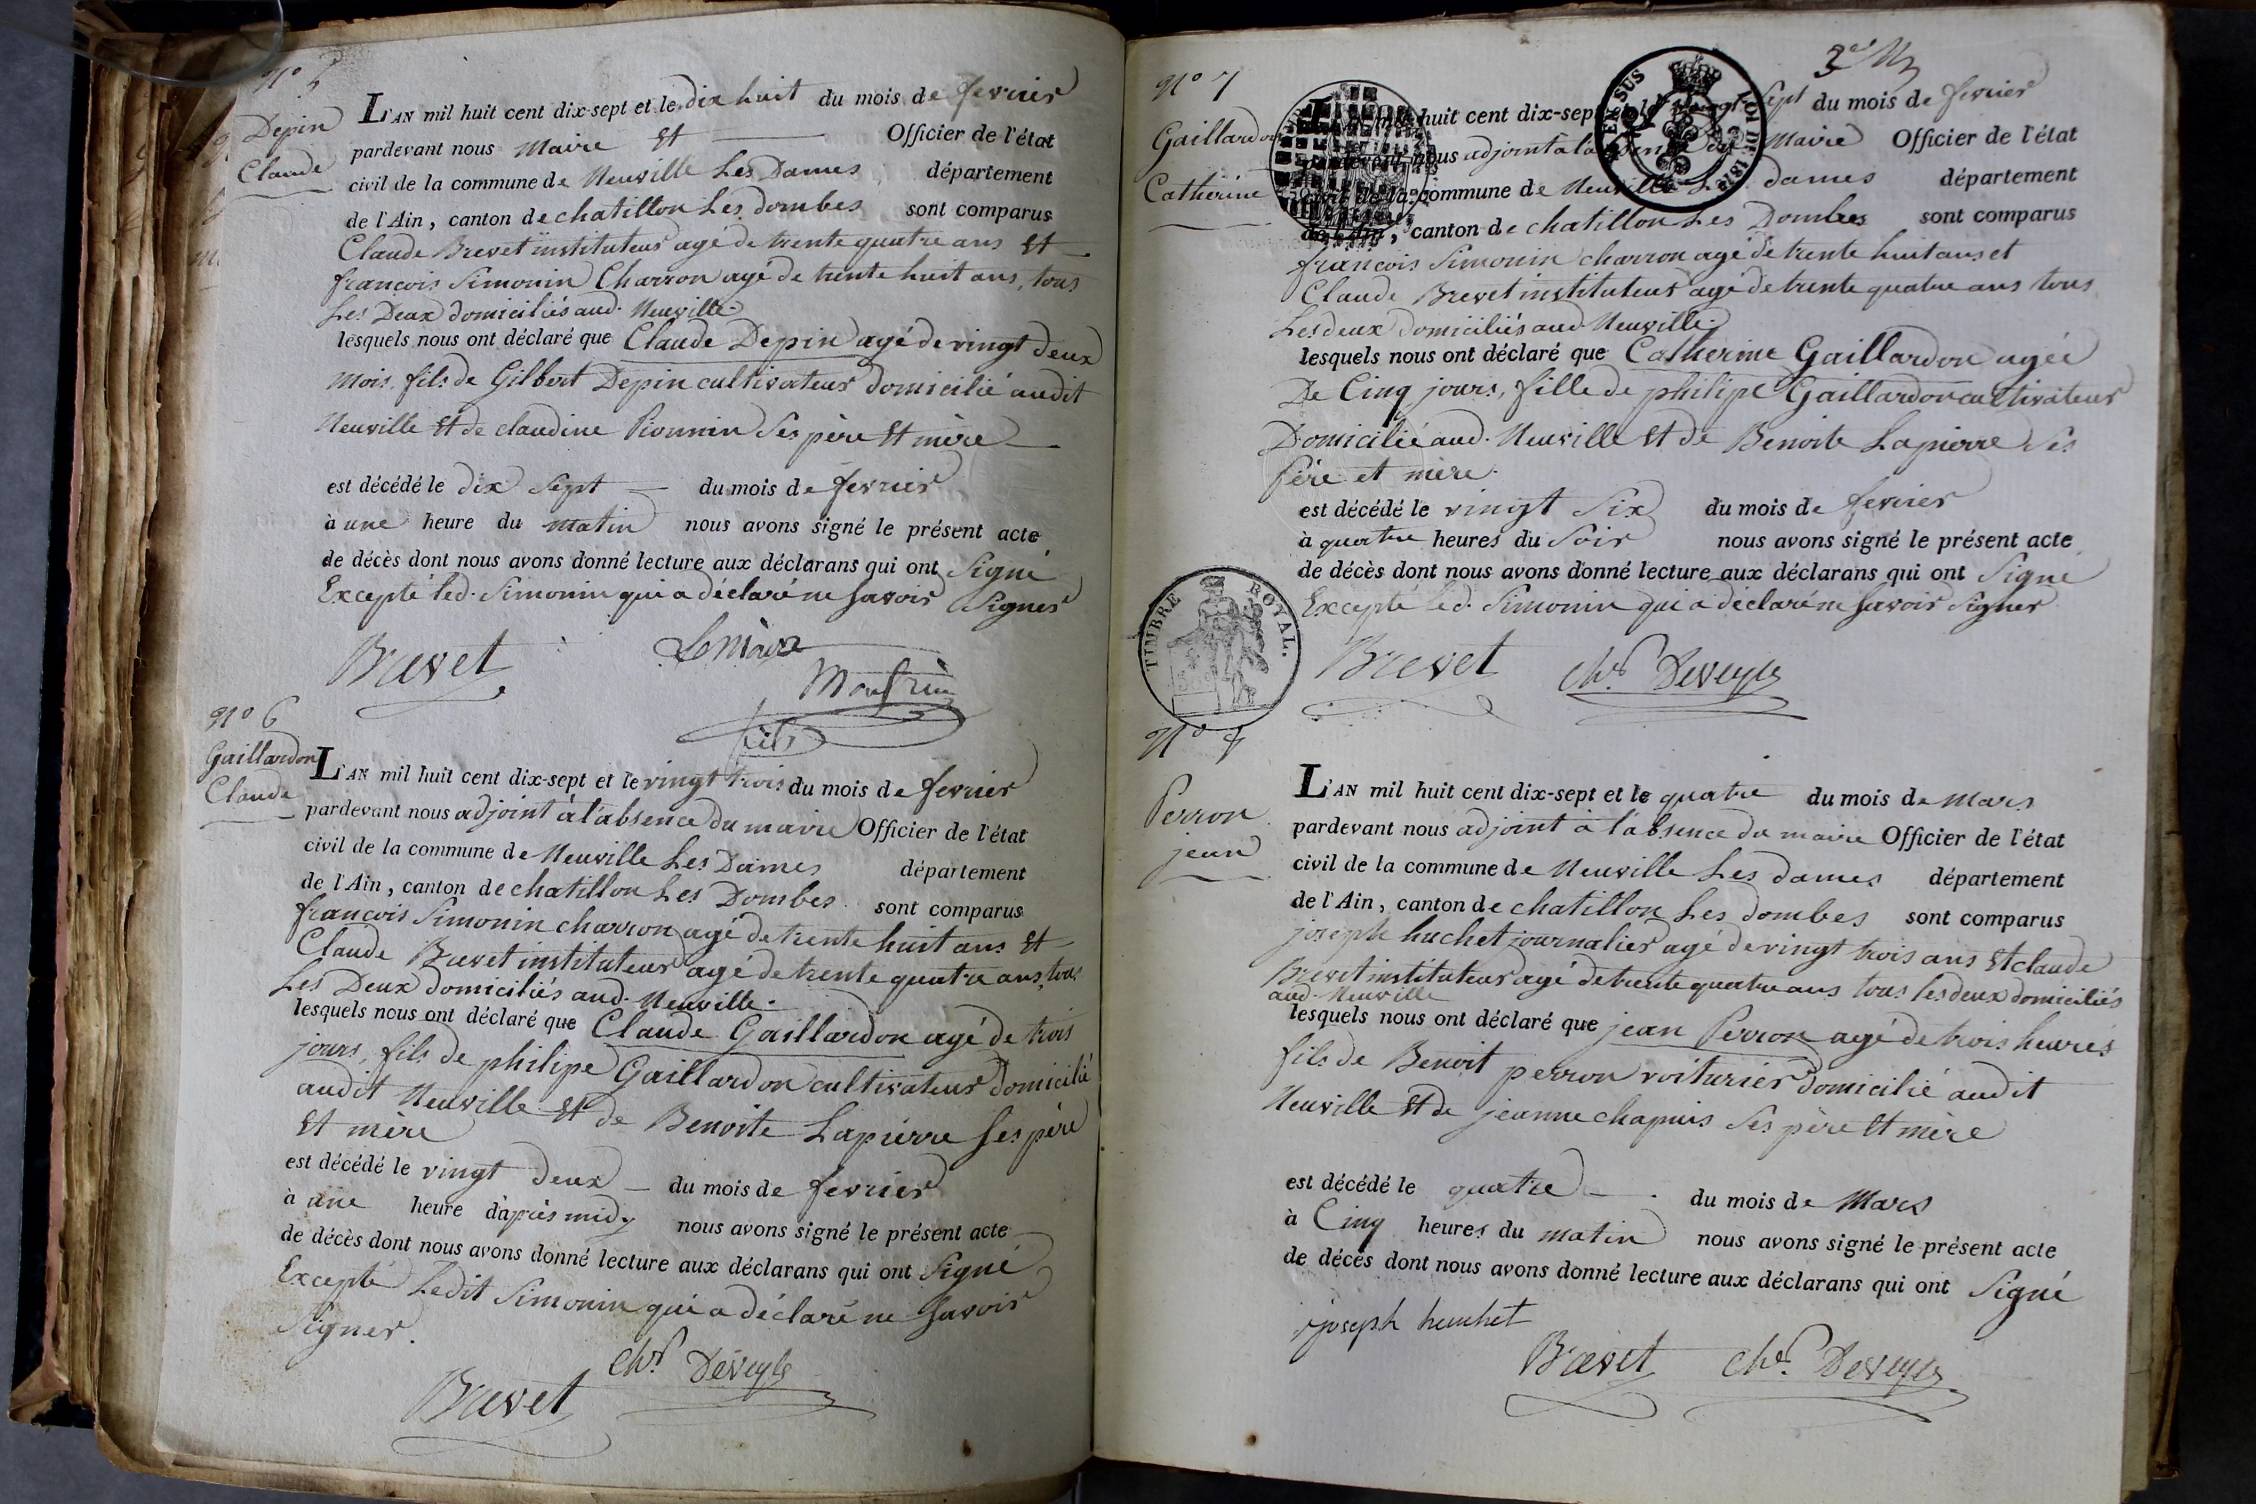 N.o 5
Depin
Claude
L'AN mil huit cent dix-sept et le dix huit du mois de fevrier
pardevant nous Maire et Officier de l'état
civil de la commune de Neuville Les Dames département
de l'Ain, canton de chatillon Les dombes sont comparus
Claude Brevet instituteur agé de trente quatre ans et
françois Simonin Charron agé de trente huit ans, tous
Les Deux domiciliés aud. Neuville.
lesquels nous ont déclaré que Claude Depin agé de vingt deux
mois, fils de Gilbert Depin cultivateur domicilié audit
Neuville et de claudine Pionnin Ses père et mère
est décédé le dix Sept du mois de fevrier
à une heure du matin nous avons signé le présent acte
de décès dont nous avons donné lecture aux déclarans qui ont Signé
Excepté led. Simonin qui a déclaré ne Savoir Signer
Brevet Le Maire
Monfrin
fils
N.o 6
Gaillardon
Claude
L'AN mil huit cent dix-sept et le vingt trois du mois de fevrier
pardevant nous adjoint à l'absence du maire Officier de l'état
civil de la commune de Neuville Les Dames département
de l'Ain, canton de chatillon Les Dombes sont comparus
françois Simonin charron agé de trente huit ans et
Claude Brevet instituteur agé de trente quatre ans, tous
Les Deux domiciliés aud. Neuville.
lesquels nous ont déclaré que Claude Gaillardon agé de trois
jours, fils de philipe Gaillardon cultivateur domicilié
audit Neuville et de Benoite Lapierre Ses père
et mère
est décédé le vingt deux du mois de fevrier
à une heure d'après midy nous avons signé le présent acte
de décès dont nous avons donné lecture aux déclarans qui ont Signé
Excepté Ledit Simonin qui a déclaré ne Savoir
Signer.
Brevet Ch.r Deveyle
N.o 7
Gaillardon
Catherine
L'AN mil huit cent dix-sept et le vingt Sept du mois de fevrier
pardevant nous adjoint à l'absence du Maire Officier de l'état
civil de la commune de Neuville Les dames département
de l'Ain, canton de chatillon Les Dombes sont comparus
françois Simonin charron agé de trente huit ans et
Claude Brevet instituteur agé de trente quatre ans tous
Les deux domiciliés aud Neuville.
lesquels nous ont déclaré que Catherine Gaillardon agée
De Cinq jours, fille de philipe Gaillardon cultivateur
Domicilié aud. Neuville et de Benoite Lapierre Ses
Père et mère.
est décédé le vingt Six du mois de fevrier
à quatre heures du Soir nous avons signé le présent acte
de décès dont nous avons donné lecture aux déclarans qui ont Signe
Excepté led. Simonin qui a déclaré ne Savoir Signer
TIMBRE ROYAL.
Brevet Ch.r Deveyle
N.o
Perron
jean
L'AN mil huit cent dix-sept et le quatre du mois de Mars
pardevant nous adjoint à l'absence du maire Officier de l'état
civil de la commune de Neuville Les dames département
de l'Ain, canton de chatillon Les dombes sont comparus
joseph huchet journalier agé de vingt trois ans et claude
Brevet instituteur agé de trente quatre ans tous les deux domiciliés
aud. Neuville
lesquels nous ont déclaré que jean Perron agé de trois heures
fils de Benoit perron voiturier domicilié audit
Neuville et de jeanne chapuis Ses père et mère
est décédé le quatre du mois de Mars
à Cinq heures du matin nous avons signé le présent acte
de décès dont nous avons donné lecture aux déclarans qui ont Signé
joseph heuchet
Brevet Ch.r Deveyle